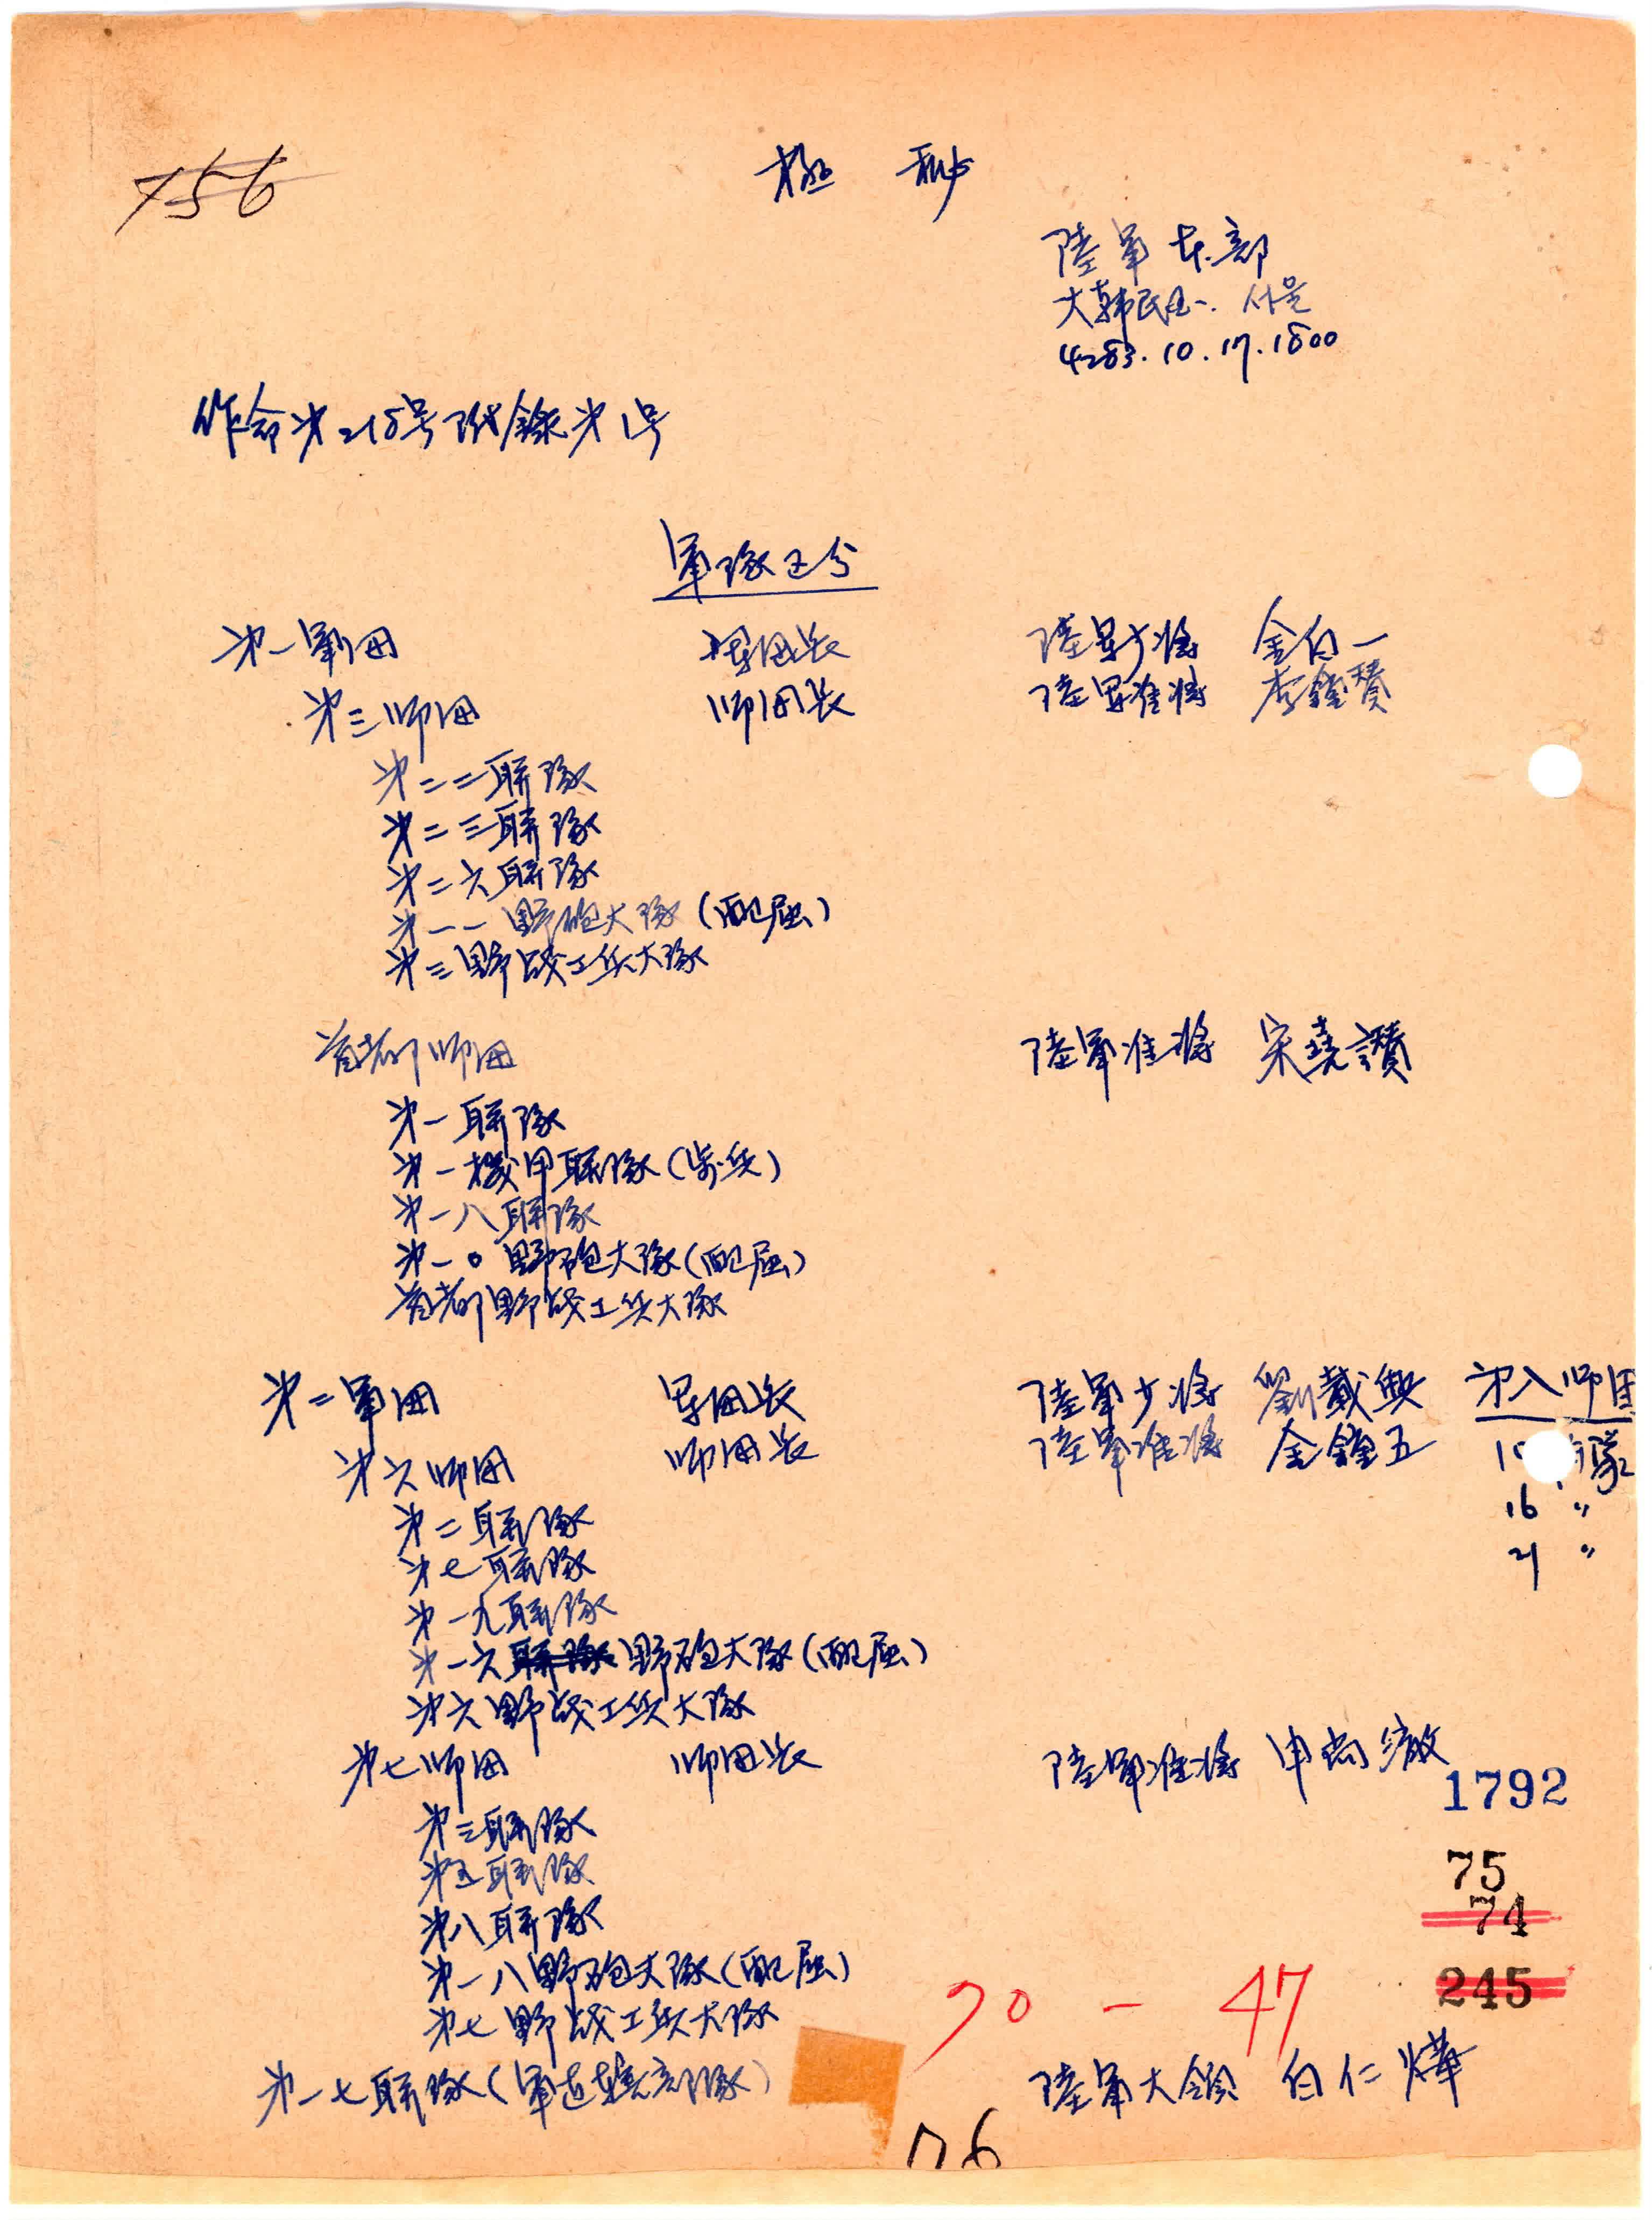 156
極 秘
陸軍本部
大韓民國 서울
4283.10.17.1800
作命第218号附錄第1号
軍隊区分
第一軍団 軍団長 陸軍少將 金白一
第三师団 师団長 陸軍准將 李鐘贊
第二二聯隊
第二三聯隊
第二六聯隊
第一一野砲大隊(配屬)
第三野战工兵大隊
首都师団 陸軍准將 宋堯讚
第一聯隊
第一機甲聯隊(步兵)
第一八聯隊
第一0野砲大隊(配屬)
首都野战工兵大隊
第二軍団 軍団長 陸軍少將 劉載興 第八师団
第六师団 师団長 陸軍准將 金鐘五 隊
16 〃
第二聯隊
21 〃
第七聯隊
第一九聯隊
第一六聯隊野砲大隊(配屬)
第六野战工兵大隊
第七师団 师団長 陸軍准將 申尚澈
1792
第三聯隊
第五聯隊
75
第八聯隊
74
第一八野砲大隊(配屬)
245
第七野战工兵大隊
90 - 47
第一七聯隊(軍直轄部隊) 陸軍大領 白仁燁
76